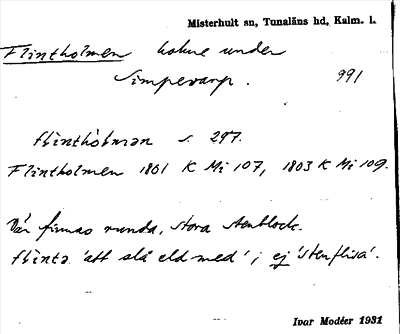 Misterhult sn, Tunaläns hd, Kalm. l.
Flintholmen holme under
Simpevarp. 991
flìnthòlmən s. 297.
Flintholmen 1801 K Mi 107, 1803 K Mi 109.
Där finnas runda, stora stenblock.
flìntə 'att slå eld med'; ej 'stenflisa'.
Ivar Modéer 1931